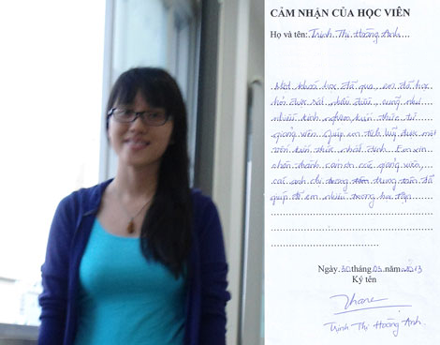 CẢM NHẬN CỦA HỌC VIÊN
Họ và tên: Trịnh Thị Hoàng Anh
Một khoá học đã qua, em đã học
hỏi được rất nhiều điều, cũng như
nhiều kinh nghiệm, kiến thức từ
giảng viên. Giúp em tích luỹ được một
kiến thức nhất định. Em xin
chân thành cám ơn các giảng viên,
các anh chị trong trung tâm đã
giúp đỡ em nhiều trong học tập.
Ngày 30 tháng 03 năm 2013
Ký tên
Trịnh Thị Hoàng Anh.